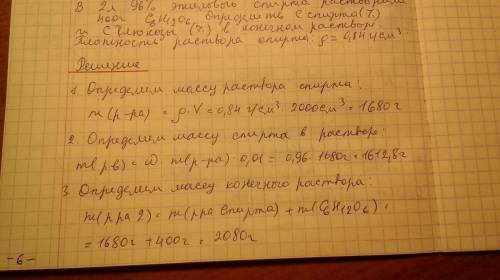 В 2л 96% этилового спирта растворили
400г C₆H₁₂O₆. Определить C спирта (%)
и C глюкозы (%) в конечном растворе
Плотность раствора спирта: ρ = 0,84 г/см³.
Решение
1. Определяем массу раствора спирта:
m(р-ра) = ρ·V = 0,84 г/см³ · 2000см³ = 1680г
2. Определяем массу спирта в растворе:
m(рв) = ω · m(р-ра) · 0,01 = 0,96 · 1680г = 1612,8г
3. Определяем массу конечного раствора:
m(рра 2) = m(рра спирта) + m(C₆H₁₂O₆) =
= 1680г + 400г = 2080г
-6-